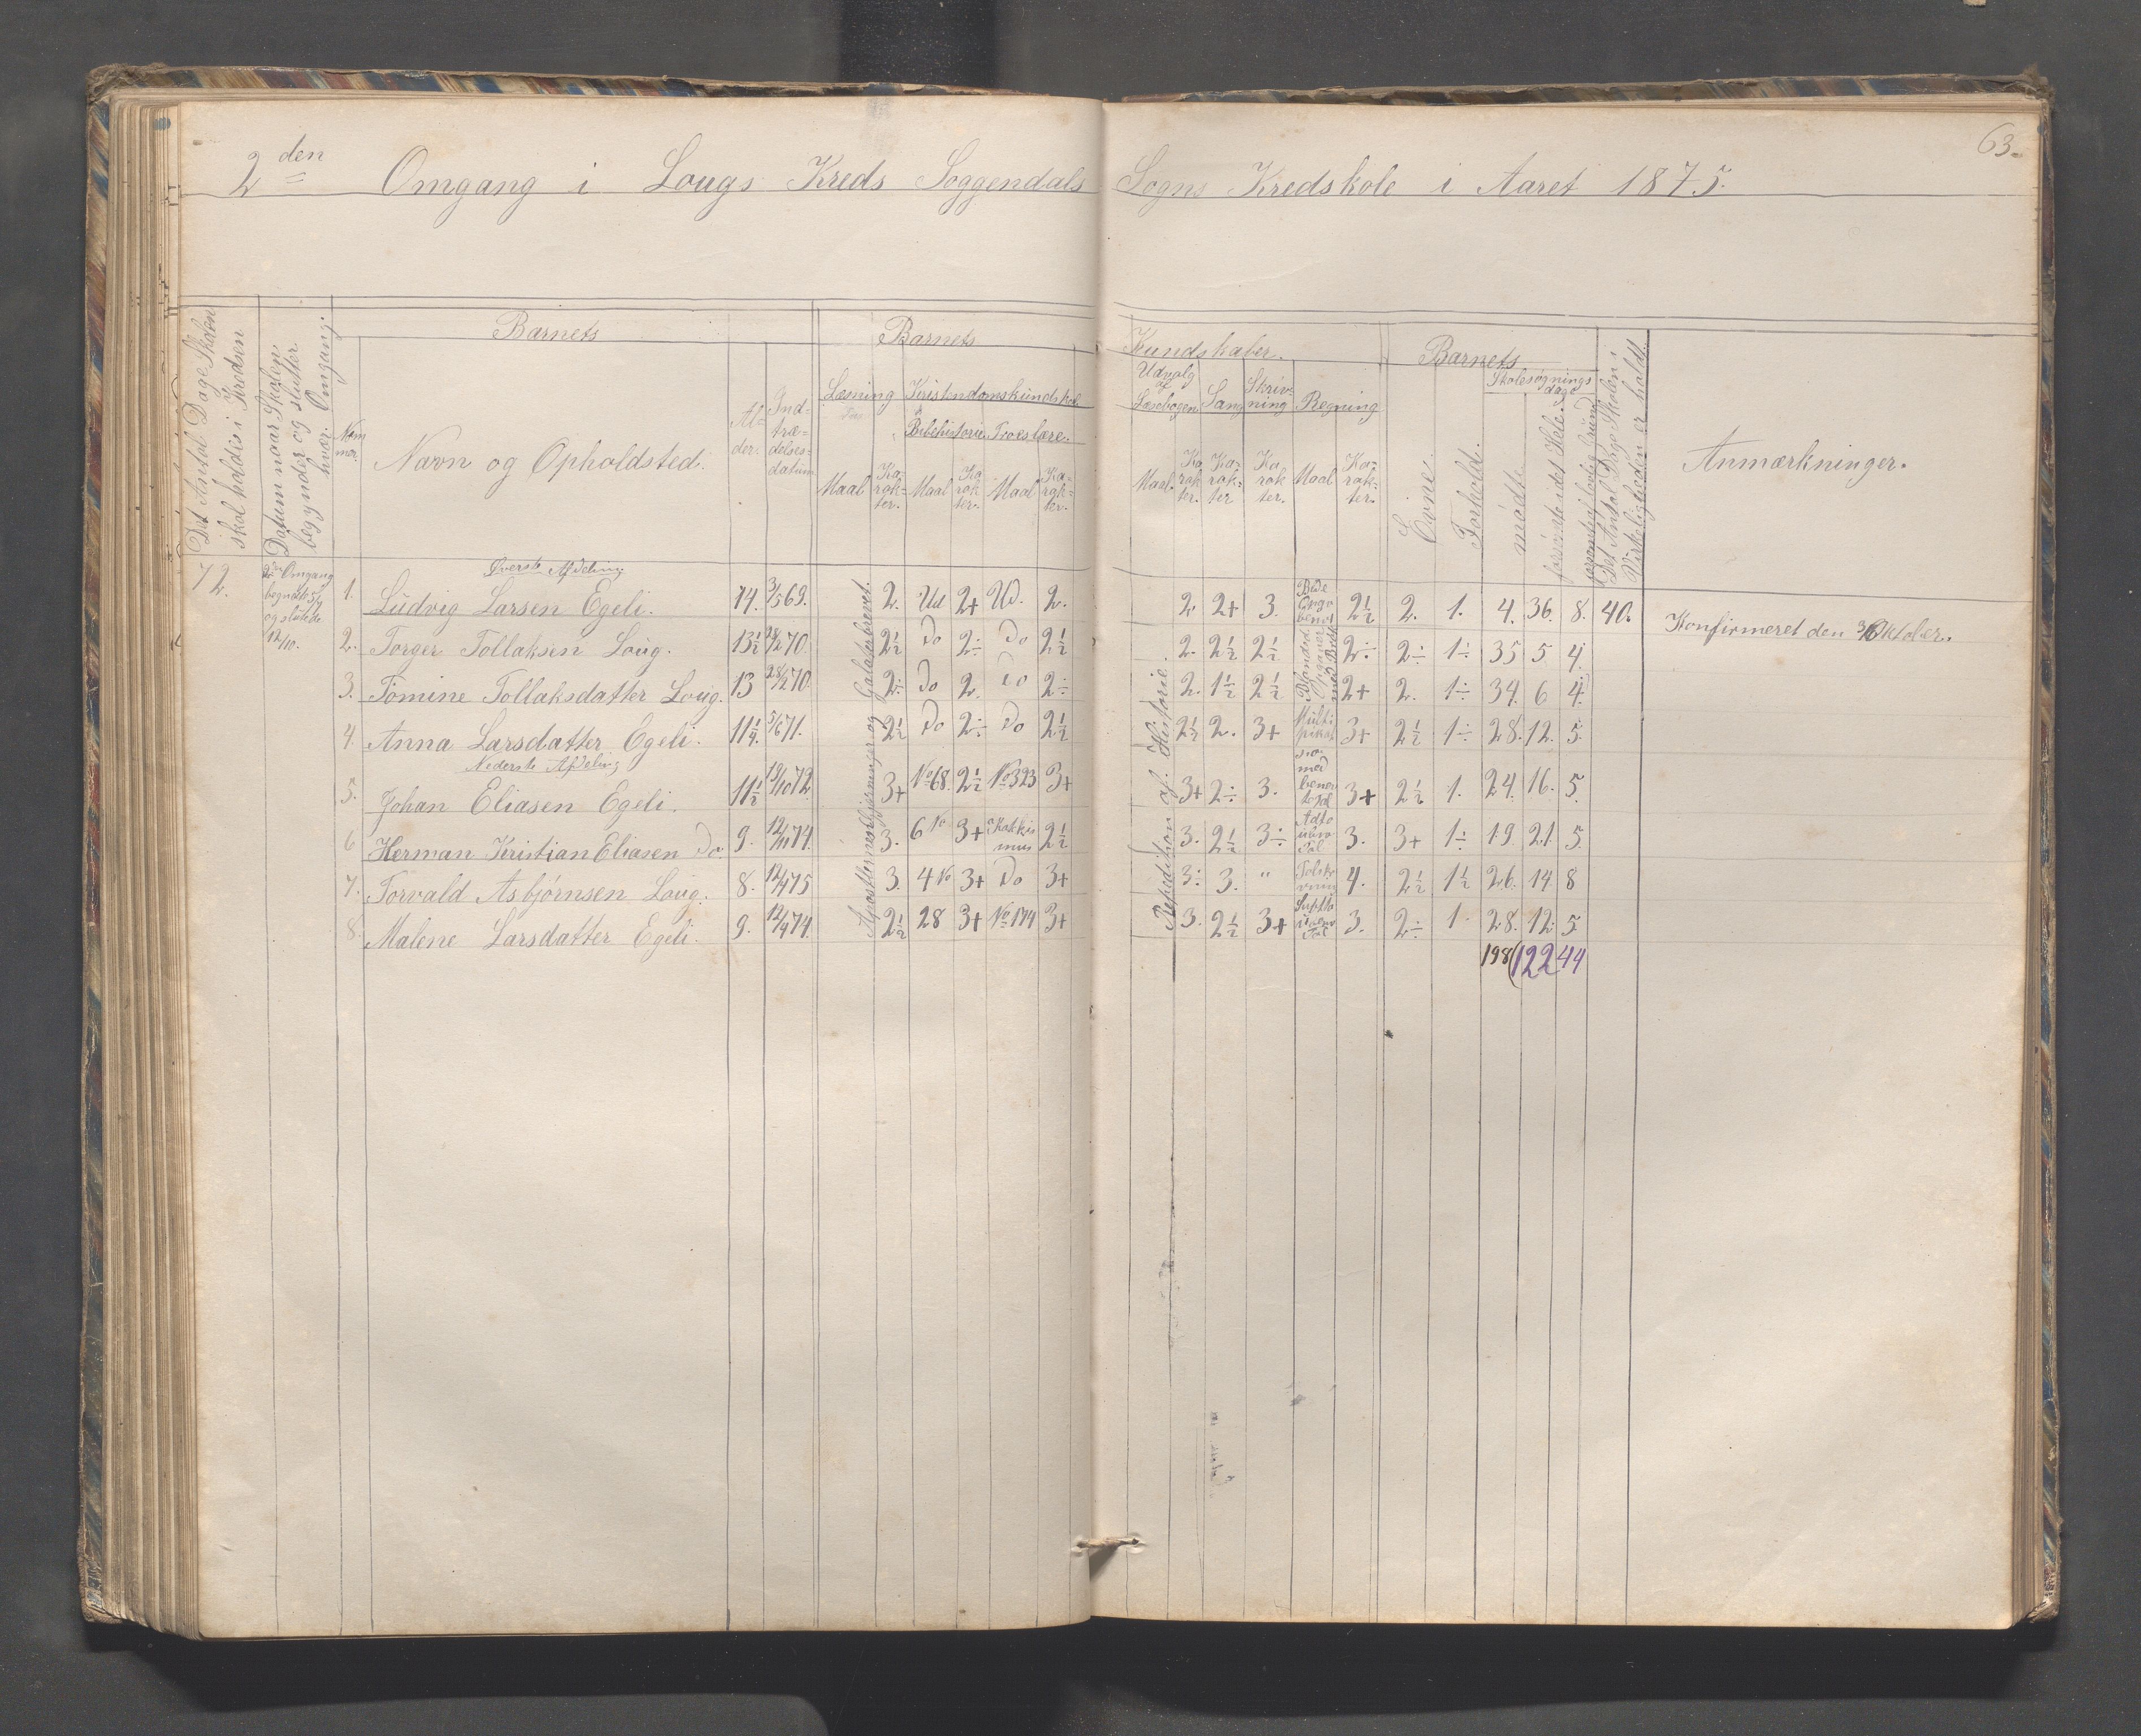 63.
2den Omgang i Lougs Kreds Soggendals Sogns Kredskole i Aaret 1875.
Det Antal Dage Skolen skal holdes i Kredsen
Datum naar Skolen begynder og slutter hver Omgang.
Nummer.
Barnets
Navn og Opholdsted.
Alder.
Indtrædelsesdatum
Barnets Kundskaber.
Læsning
Kristendomskundskab
Bibelhistorie
Troeslære.
Udvalg af Læsebogen
Sang
Skrivning
Regning
Maal Karakter. Maal Karakter. Maal Karakter.
Maal. Karakter. Karakter Karakter. Maal Karakter.
Barnets
Evne.
Forhold.
Skolesøgningsdage
mødte
forsømte i det Hele.
forsømte af lovlig Grund
Det Antal Dage Skolen i Virkeligheden er holdt.
Anmærkninger.
Øverste Afdeling
72. 2den Omgang begyndte 5/7 og sluttede 12/10.
Apostlernes Gjerninger og Galaterbrevet.
Repetition af Historie.
1. Ludvig Larsen Egeli. 14. 3/5 69. 2. Ud 2+ Ud. 2. 2. 2+ 3. 2½ 2. 1. 4. 36. 8. 40. Konfirmeret den 3/10 Oktober.
2. Torger Tollaksen Loug. 13½ 28/2 70. 2½ Do 2÷ Do 2½ 2. 2½ 2½ 2÷ 2÷ 1÷ 35 5 4.
3. Tomine Tollaksdatter Loug. 13 28/2 70. 2÷ Do 2. Do 2÷ 2. 1½ 2½ 2+ 2. 1÷ 34. 6 4.
4. Anna Larsdatter Egeli. 11¼ 5/6 71. 2½ Do 2÷ Do 2½ 2½ 2. 3+ 3+ 2½ 1÷ 28. 12. 5.
Nederste Afdeling
5. Johan Eliasen Egeli. 11½ 19/10 72. 3+ No 68. 2½ No 323 3+ 3+ 2÷ 3. 3+ 2½ 1. 24. 16. 5.
6 Herman Kristian Eliasen Do. 9. 12/11 74. 3. 6 No 3+ Katekismus 2½ 3. 2½ 3÷ 3. 3+ 1÷ 19. 21. 5.
7. Torvald Asbjørnsen Loug. 8. 12/4 75 3. 4 No 3+ Do 3+ 3÷ 3. " 4. 2½ 1½ 26. 14. 8
8. Malene Larsdatter Egeli. 9. 12/4 74. 2½ 28 3+ No 174 3+ 3. 2½ 3+ 3. 2÷ 1. 28. 12. 5.
198 122 44